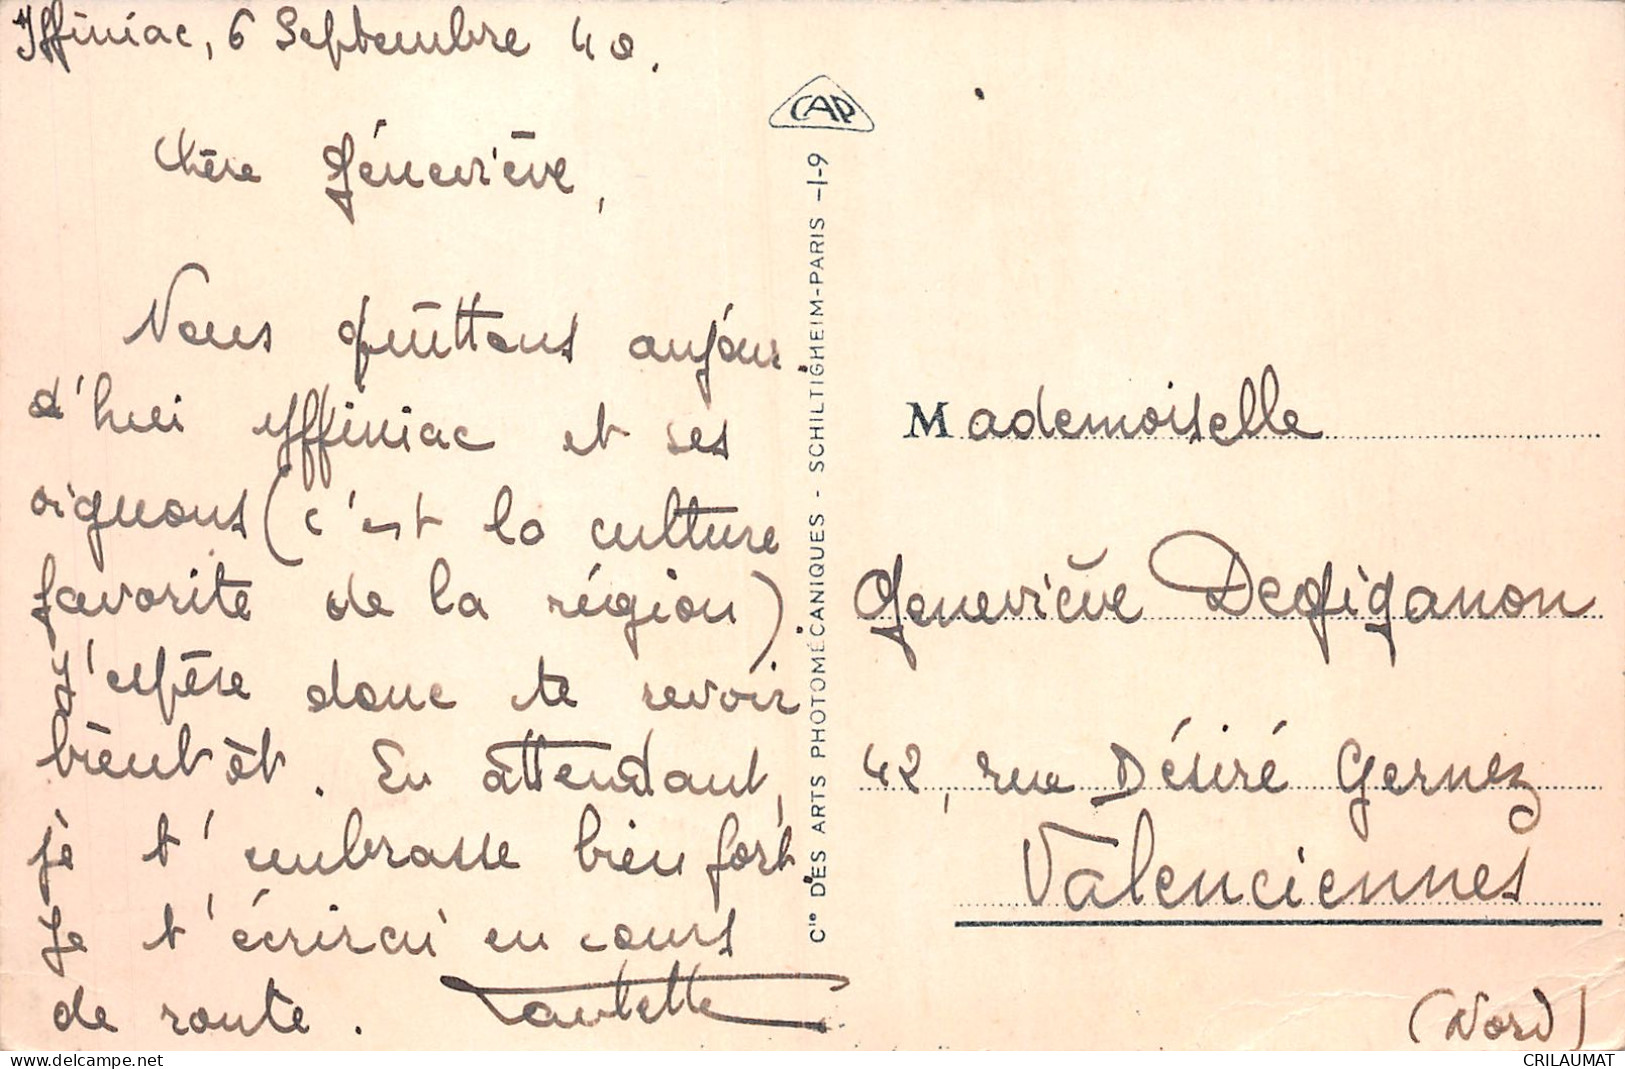 Yffiniac, 6 Septembre 40.
Chère Géneviève,
Nous quittons aujour
d'hui Yffiniac et ses
oignons (c'est la culture
favorite de la région)
J'espère donc te revoir
bientôt. En attendant,
je t'embrasse bien fort
Je t'écrirai en cours
de route.
CAP
Cie DES ARTS PHOTOMÉCANIQUES - SCHILTIGHEIM-PARIS -1-9
Mademoiselle
Geneviève
42, rue Désiré Gernez
Valenciennes
(Nord)
CRILAUMAT